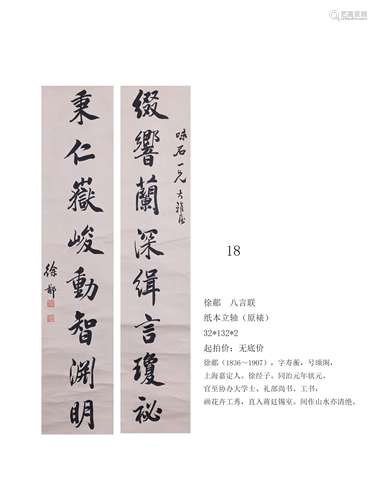 綴響蘭深緝言瓊祕
味石一兄大雅属
秉仁嶽峻動智淵明
徐郙
18
徐郙 八言联
纸本立轴（原裱）
32*132*2
起拍价：无底价
徐郙（1836~1907），字寿蘅，号颂阁，
上海嘉定人，徐经子，同治元年状元，
官至协办大学士、礼部尚书，工书，
画花卉工秀，直入蒋廷锡室，间作山水亦清绝。